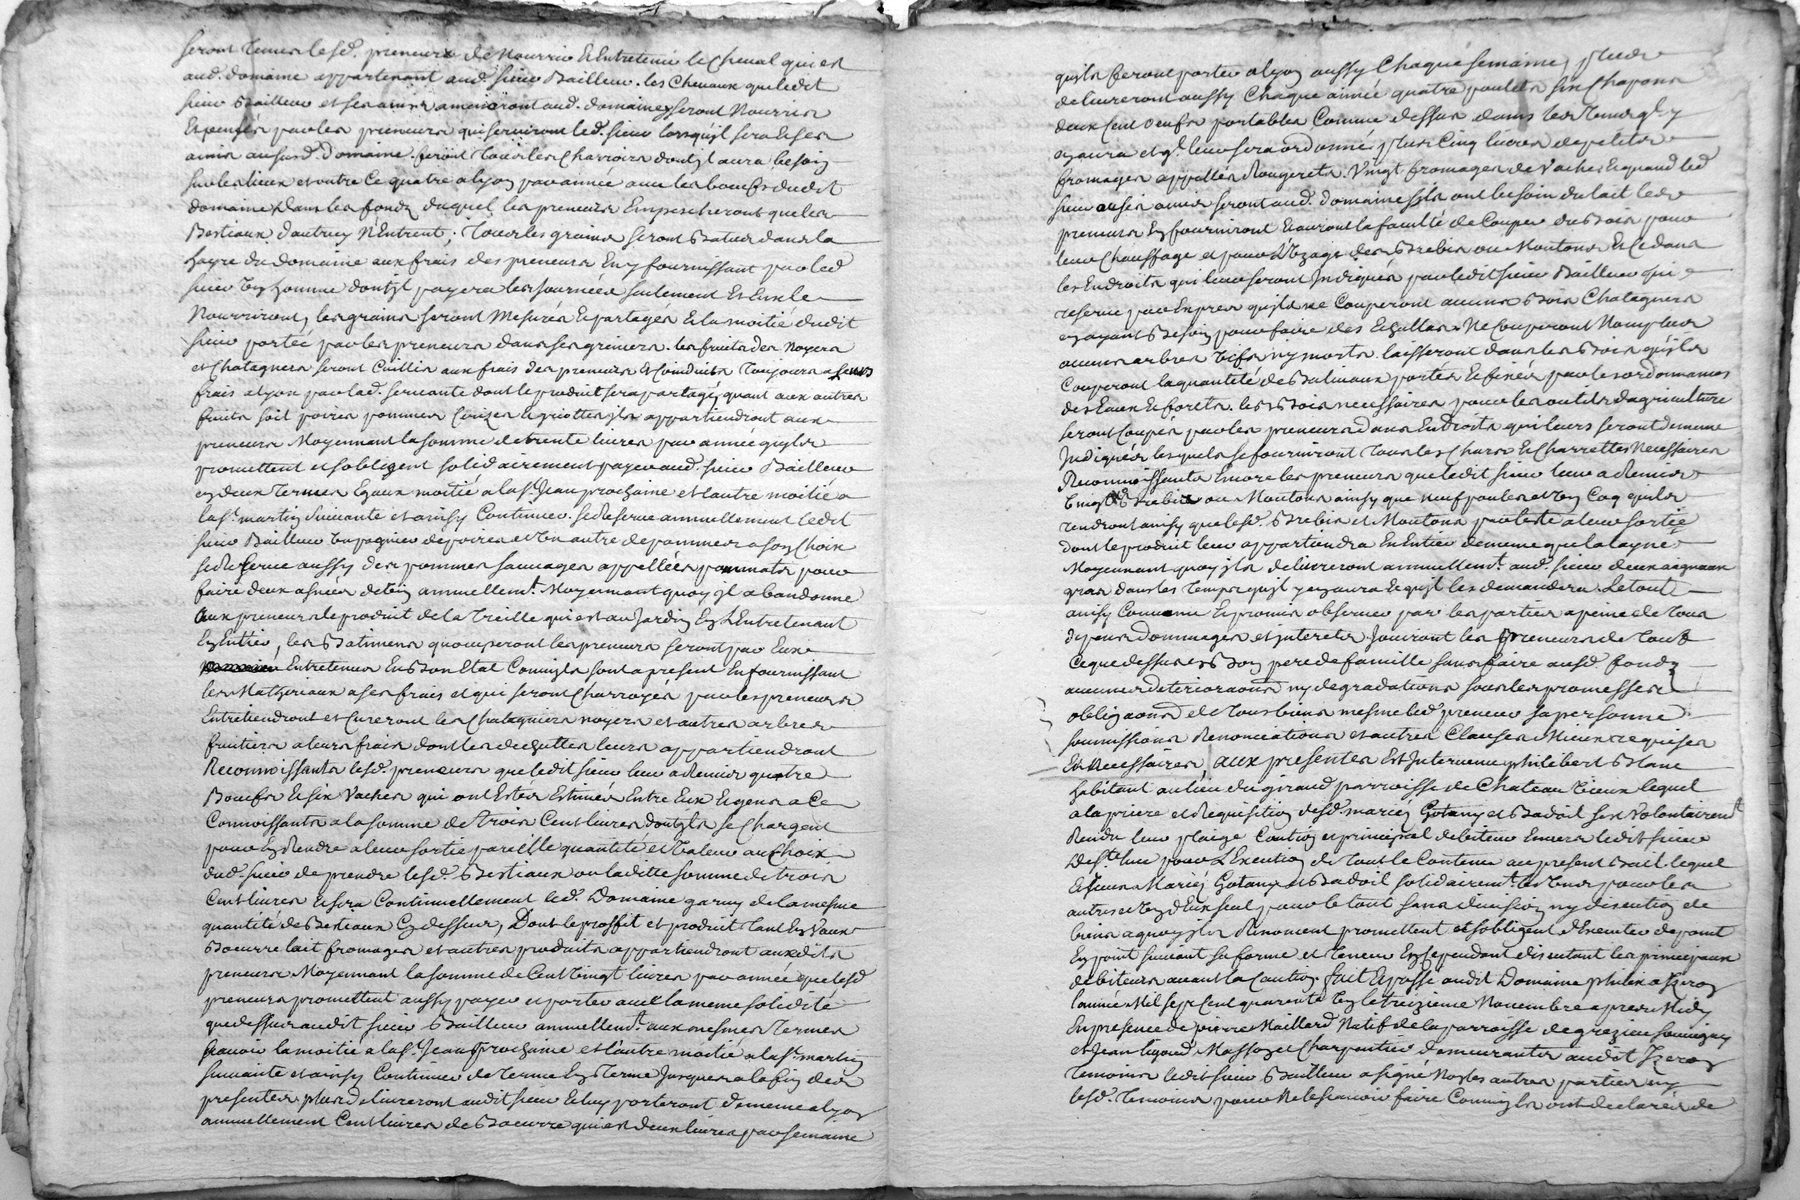 seront tenus lesd. preneurs de Nourrir et Entretenir le Cheval qui est
aud. domaine appartenant aud. sieur Bailleur. les Chevaux que ledit
sieur Bailleur et ses amis ameineront aud. domaine seront Nourris
Et pensés par les preneurs qui serviront led. sieur lorsqu'il sera et ses
amis aususd. Domaine. feront tous les Charrois dont jl aura besoin
sur les lieux et outre Ce quatre a lyon par année avec les boeufs dudit
domaine dans les fonds duquel les preneurs Empescheront que les
Bestiaux d'autruy N'Entrent; Tous les grains seront Batus dans la
hayre du domaine aux frais des preneurs En y fournissant par led.
sieur Un homme dont jl payera les journées seulement Et Eux le
Nourriront, les grains seront Mesurés Et partages Et la moitié dudit
sieur portée par les preneurs dans ses greniers. les fruits des Noyers
et Chatagners seront Cuillis aux frais des preneurs et Conduits toujours a leurs
frais a lyon par lad. servante dont le produit sera partagé, quant aux autres
fruits soit poires pommes Cerizes Et griottes jls appartiendront aux
preneurs Moyennant la somme de trente livres par année qu'jls
promettent et s'obligent solidairement payer aud. sieur Bailleur
en deux termes Egaux moitié a la St. Jean prochaine et l'autre moitié a
la St. martin Suivante et ainsy Continuer. se Reserve annuellement ledit
sieur Bailleur Un pagnier de poires et Un autre de pommes a son Choix
se Reserve aussy des pommes sauvages appellées pour
faire deux asnées de vin annuellemt. Moyennant quoy jl abandonne
Aux preneurs le produit de la Treille qui est au Jardin En L'Entretenant
En Entier, les Batimens qu'occuperont les preneurs seront par Eux
Entretenus En Bon Etat Comm'jls sont a present En fournissant
les Matheriaux a ses frais et qui seront Charroyés par les preneurs
Entretiendront et Cureront les Chatagniers noyers et autres arbres
fruitiers a leurs frais dont les leurs appartiendront
Reconnoissants lesd. preneurs que ledit sieur leur a Remis quatre
Boeufs Et six Vaches qui ont Estés Estimés Entre Eux Et gens a Ce
Connoissants a la somme de trois Cent livres dont jls se Chargent
pour En Rendre a leur sortie pareille quantité et Valeur au Choix
dud. sieur de prendre lesd. Bestiaux ou laditte somme de trois
Cent livres Et sera Continuellement led. Domaine garny de la mesme
quantité de Bestiaux Cy dessus, Dont le proffit et produit Tant En Vaux
Boeurre lait fromages et autres produits appartiendront auxdits
preneurs Moyennant la somme de Cent Vingt livres par année que lesd.
preneurs promettent aussy payer et porter avec la meme solidité
que dessus audit sieur Bailleur annuellemt. aux mesmes termes
scavoir la moitié a la St. Jean prochaine et l'autre moitié a la St. martin
suivante et ainsy Continuer de terme En terme Jusques a la fin des
presentes plus delivreront audit sieur Et luy porteront de meme a lyon
annuellement Cent livres de Boeurre qui est deux livres par semaine
qu'jls feront porter a lyon aussy Chaque semaine, plus
delivreront aussy Chaque année quatre poulets six Chapons
deux Cent Oeufs portables Comme dessus dans les Tems qu'jl y
en aura et ql. leur sera ordonné, plus Cinq livres de petits
fromages appellés Rougerets. Vingt fromages de Vaches Et quand led.
sieur ou ses amis seront aud. domaine s'jls ont besoin du lait lesd.
preneurs En fourniront Et auront la faculté de Couper du Bois pour
leur Chauffage et pour l'Uzage des Brebis ou Moutons Et Ce dans
les Endroits qui leur seront Indiqués par ledit sieur Bailleur qui
reserve par Exprès qu'jls ne Couperont aucuns Bois Chatagners
en ayant Besoin pour faire des Echallas Ne Couperont Non plus
aucuns arbres Vifs ny morts. laisseront dans les Bois qu'jls
Couperont la quantité de Baliveaux portés Et fixés par les ordonnances
des Eaux Et forets. les Bois necessaires pour les outils d'agriculture
seront Coupés par les preneurs dans Endroits qui leurs seront de meme
Indiqués lesquels se fourniront tous les Chars Et Charrettes Necessaires
Reconnoissants Encore les preneurs que ledit sieur leur a Remis
Vingt Brebis ou Moutons ainsy que neuf poules et Un Coq qu'jls
rendront ainsy que lesd. Brebis et Moutons par teste a leur sortie
dont le produit leur appartiendra En Entier de meme que la layne
Moyennant quoy jls delivreront annuellemt. aud. sieur deux aigneaux
gras dans les Temps qu'jl y en aura Et qu'jl les demandera. Le tout
ainsy Convenu Et promis observer par les parties a peine de tous
depens Dommages et interets. Jouiront les preneurs de tout
Ce que dessus En Bon pere de famille sans faire ausd. fonds
aucunes deteriorations ny degradations sous les promesses
obligaons. de tous biens mesme led. preneur sa personne
soumissions Renonciations et autres Clauses Mieux requises
Et Necessaires aux presentes Est Intervenu philibert Blanc
habitant au lieu du giraud parroisse de Chateau Vieux lequel
a la priere et Requisition desd. mariés Gotany et Badoil s'est Volontairemt.
Rendu leur plaige Caution et principal debiteur Envers ledit sieur
pour L'Execution de tout le Contenu au present Bail lequel
Et sieurs Mariés Gotany et Badoil solidairemt. les Uns pour les
autres et Un d'Eux seul pour le tout sans division ny discution de
biens a quoy jls Renoncent promettent et s'obligent d'Executer de point
En point suivant sa forme et teneur En Cependant discutant les principaux
debiteurs avant la Caution fait Et passé audit Domaine a Izeron
l'année Mil sept Cent quarante Un le treizieme Novembre apres Midy
En presence de pierre Maillard Natif de la parroisse de grezieu souvigny
et Jean Masson et Charpentier demeurants audit Izeron
Temoins ledit sieur Bailleur a signé Non les autres parties ny
lesd. Temoins pour Ne le scavoir faire Comm'jls ont declarés de